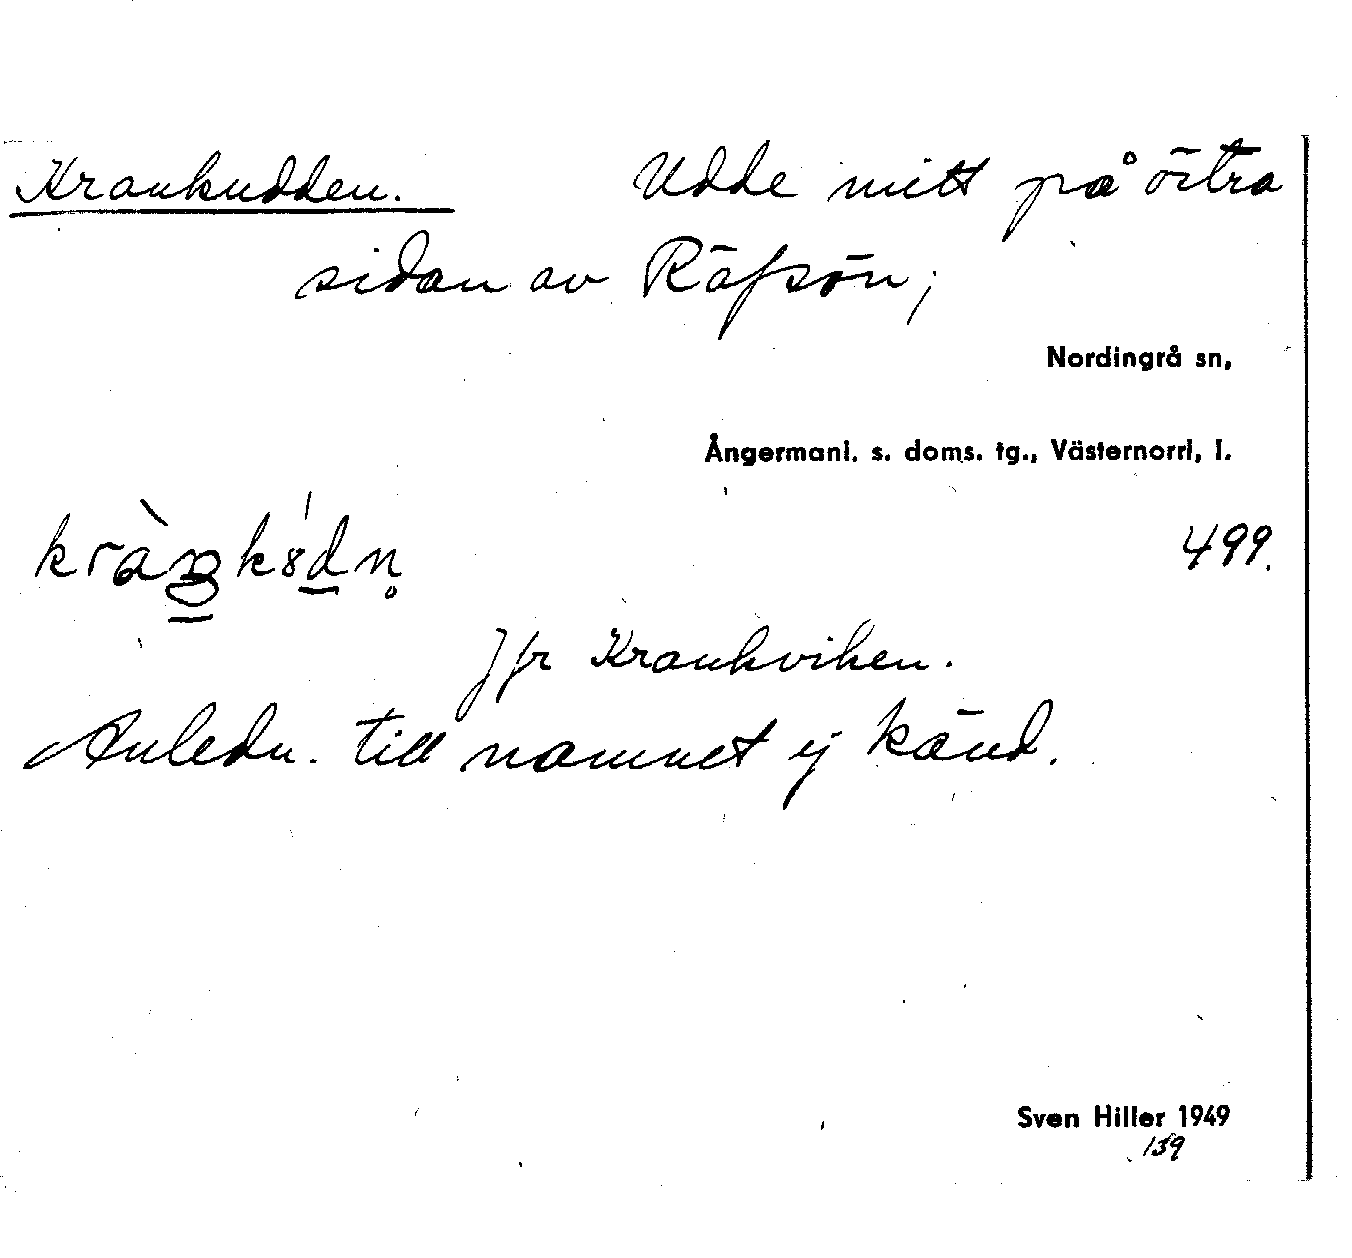 Krankudden. Udde mitt på östra
sidan av Räfsön;
Nordingrå sn,
Ångermanl. s. doms. tg., Västernorrl, l.
499.
Jfr Krankviken.
Anledn. till namnet ej känd.
Sven Hiller 1949
139